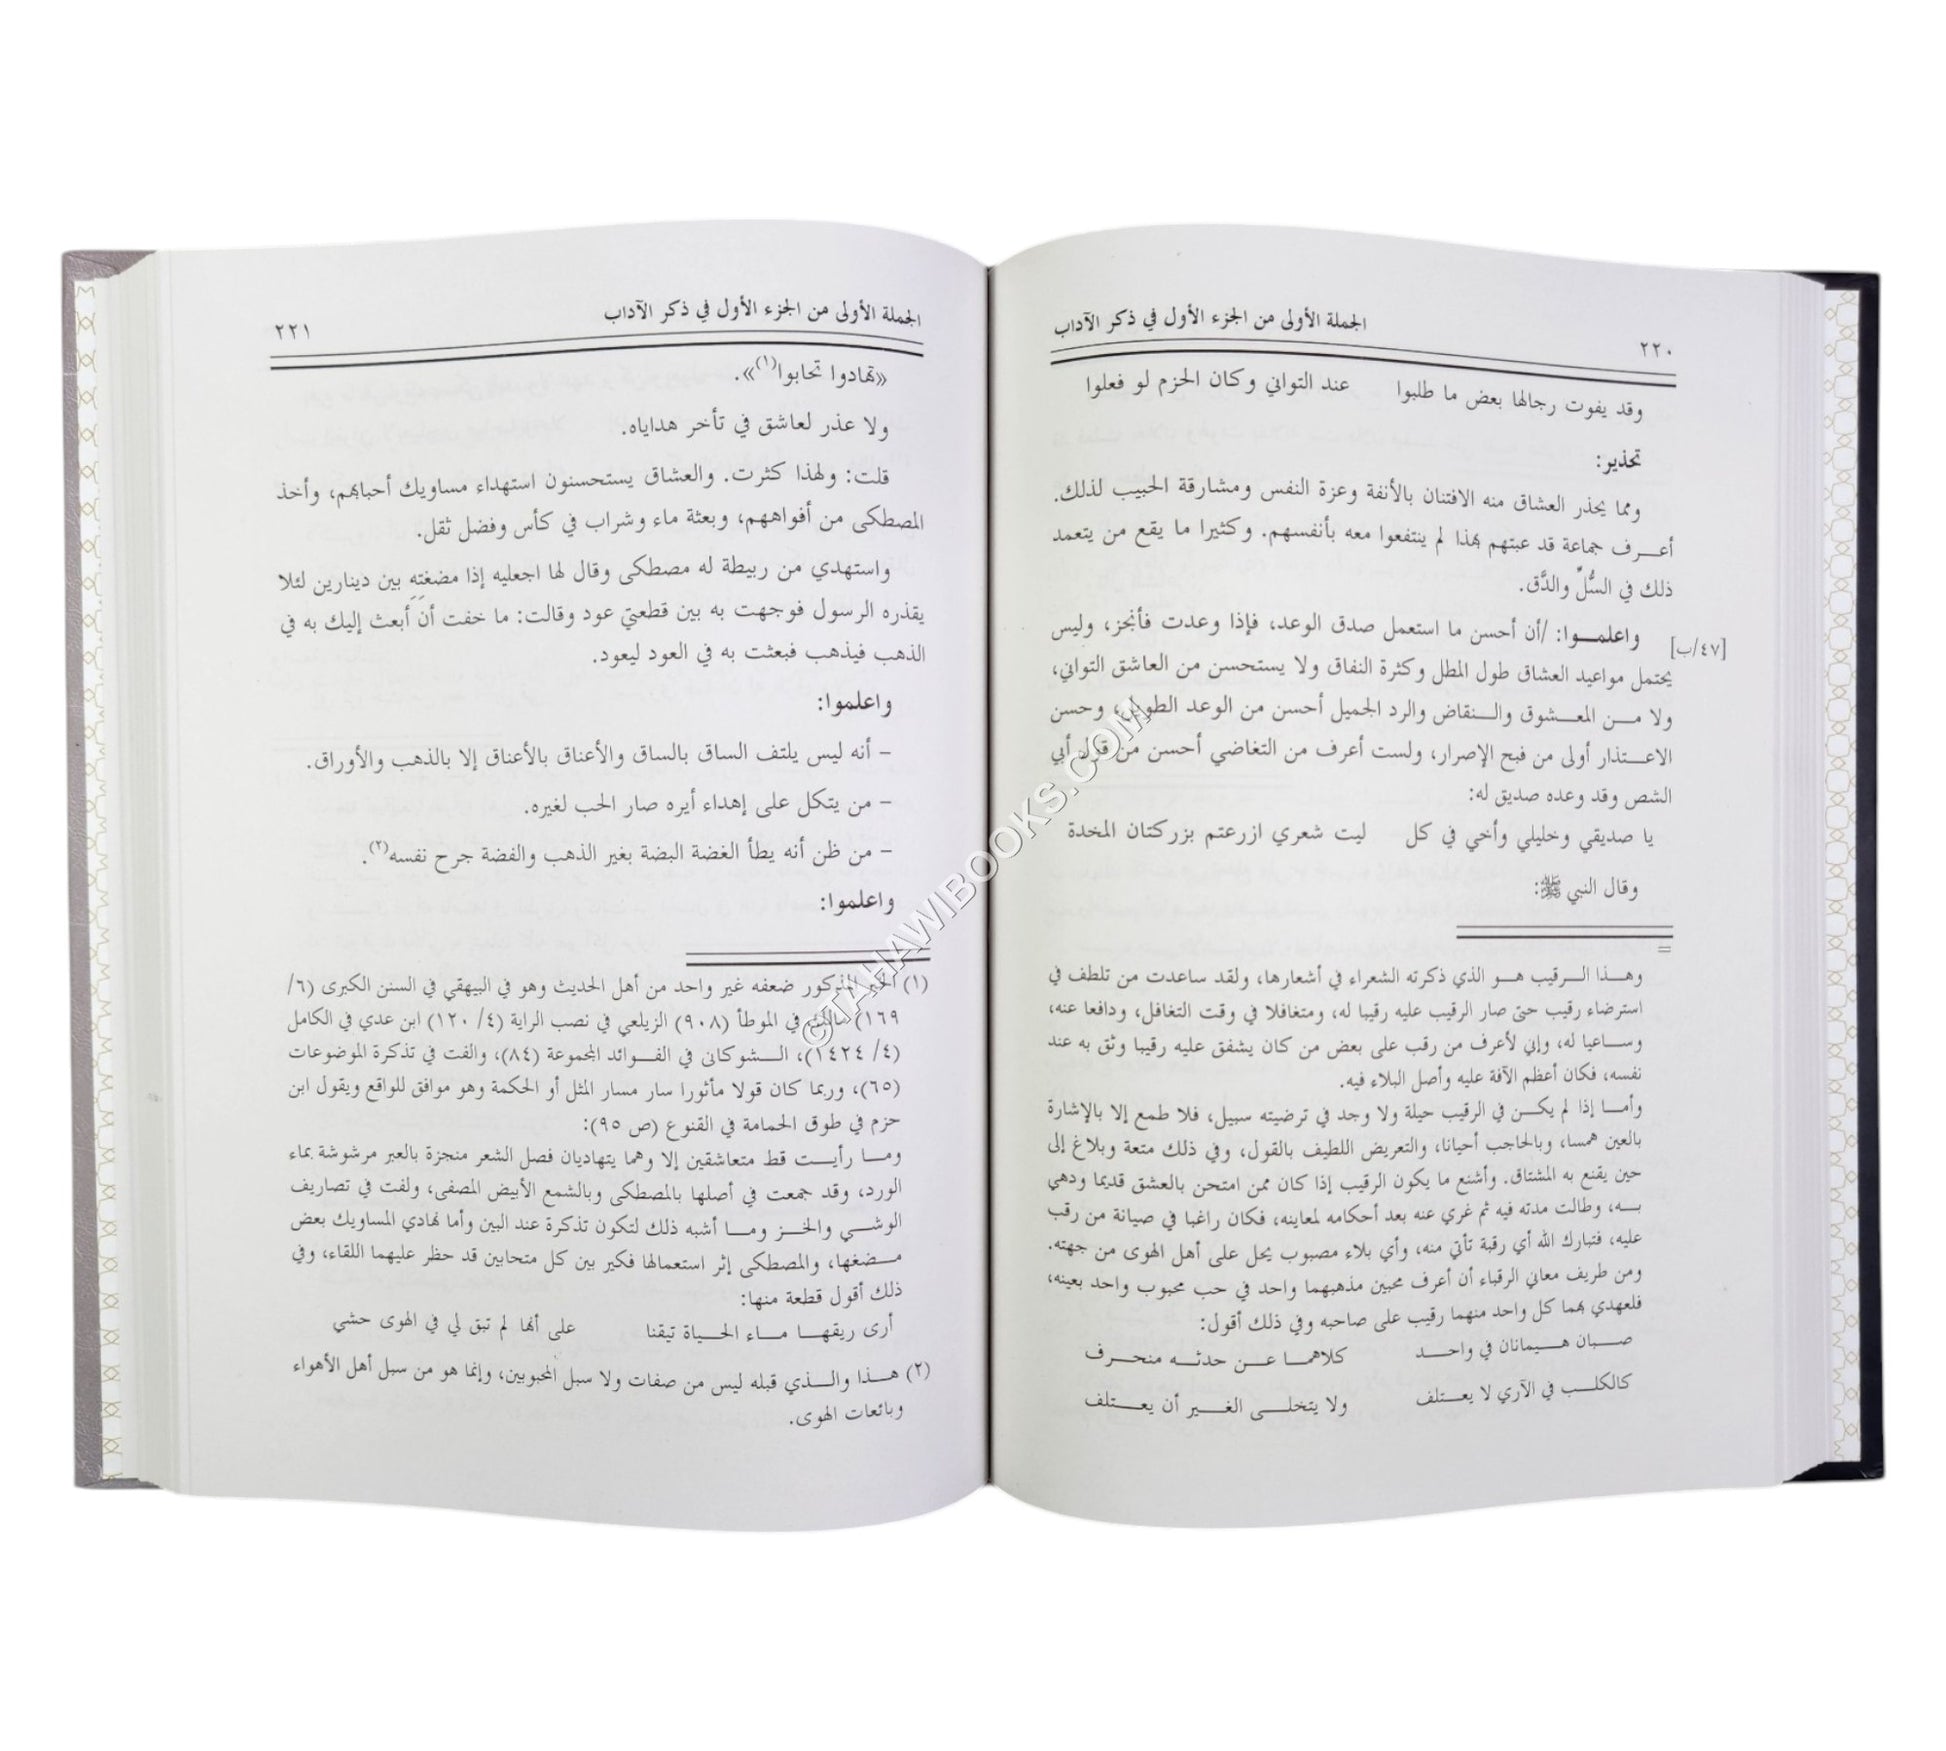 ٢٢٠
الجملة الأولى من الجزء الأول في ذكر الآداب
وقد يفوت رجالها بعض ما طلبوا عند التواني وكان الحزم لو فعلوا
تحذير:
ومما يحذر العشاق منه الافتنان بالأنفة وعزة النفس ومشارقة الحبيب لذلك.
أعرف جماعة قد عبتهم بهذا لم ينتفعوا معه بأنفسهم. وكثيرا ما يقع من يتعمد
ذلك في السُّلِّ والدَّق.
[٤٧/ب] واعلموا: /أن أحسن ما استعمل صدق الوعد، فإذا وعدت فأنجز، وليس
يحتمل مواعيد العشاق طول المطل وكثرة النفاق ولا يستحسن من العاشق التواني،
ولا من المعشوق والنقاض والرد الجميل أحسن من الوعد الطويل، وحسن
الاعتذار أولى من فبح الإصرار، ولست أعرف من التغاضي أحسن من قول أبي
الشص وقد وعده صديق له:
يا صديقي وخليلي وأخي في كل ليت شعري ازرعتم بزركتان المخدة
وقال النبي ﷺ:
=
وهذا الرقيب هو الذي ذكرته الشعراء في أشعارها، ولقد ساعدت من تلطف في
استرضاء رقيب حتى صار الرقيب عليه رقيبا له، ومتغافلا في وقت التغافل، ودافعا عنه،
وساعيا له، وإني لأعرف من رقب على بعض من كان يشفق عليه رقيبا وثق به عند
نفسه، فكان أعظم الآفة عليه وأصل البلاء فيه.
وأما إذا لم يكن في الرقيب حيلة ولا وجد في ترضيته سبيل، فلا طمع إلا بالإشارة
بالعين همسا، وبالحاجب أحيانا، والتعريض اللطيف بالقول، وفي ذلك متعة وبلاغ إلى
حين يقنع به المشتاق. وأشنع ما يكون الرقيب إذا كان ممن امتحن بالعشق قديما ودهي
به، وطالت مدته فيه ثم غري عنه بعد أحكامه لمعاينه، فكان راغبا في صيانة من رقب
عليه، فتبارك الله أي رقبة تأتي منه، وأي بلاء مصبوب يحل على أهل الهوى من جهته.
ومن طريف معاني الرقباء أن أعرف محبين مذهبهما واحد في حب محبوب واحد بعينه،
فلعهدي بهما كل واحد منهما رقيب على صاحبه وفي ذلك أقول:
صبان هيمانان في واحد كلاهما عن حدثه منحرف
كالكلب في الآري لا يعتلف ولا يتخلى الغير أن يعتلف
الجملة الأولى من الجزء الأول في ذكر الآداب
٢٢١
«تهادوا تحابوا(١)».
ولا عذر لعاشق في تأخر هداياه.
قلت: ولهذا كثرت. والعشاق يستحسنون استهداء مساويك أحبابهم، وأخذ
المصطكى من أفواههم، وبعثة ماء وشراب في كأس وفضل ثقل.
واستهدي من ربيطة له مصطكى وقال لها اجعليه إذا مضغتِهِ بين دينارين لئلا
يقذره الرسول فوجهت به بين قطعتي عود وقالت: ما خفت أن أبعث إليك به في
الذهب فيذهب فبعثت به في العود ليعود.
واعلموا:
– أنه ليس يلتف الساق بالساق والأعناق بالأعناق إلا بالذهب والأوراق.
– من يتكل على إهداء أيره صار الحب لغيره.
– من ظن أنه يطأ الغضة البضة بغير الذهب والفضة جرح نفسه(٢).
واعلموا:
(١) الخبر المذكور ضعفه غير واحد من أهل الحديث وهو في البيهقي في السنن الكبرى (٦/
١٦٩) مالك في الموطأ (٩٠٨) الزيلعي في نصب الراية (٤/ ١٢٠) ابن عدي في الكامل
(٤/ ١٤٢٤)، الشوكانى في الفوائد المجموعة (٨٤)، والفت في تذكرة الموضوعات
(٦٥)، وربما كان قولا مأثورا سار مسار المثل أو الحكمة وهو موافق للواقع ويقول ابن
حزم في طوق الحمامة في القنوع (ص ٩٥):
وما رأيت قط متعاشقين إلا وهما يتهاديان فصل الشعر منجزة بالعبر مرشوشة بماء
الورد، وقد جمعت في أصلها بالمصطكى وبالشمع الأبيض المصفى، ولفت في تصاريف
الوشي والخز وما أشبه ذلك لتكون تذكرة عند البين وأما تهادي المساويك بعض
مضغها، والمصطكى إثر استعمالها فكير بين كل متحابين قد حظر عليهما اللقاء، وفي
ذلك أقول قطعة منها:
أرى ريقها ماء الحياة تيقنا على أنها لم تبق لي في الهوى حشي
(٢) هذا والذي قبله ليس من صفات ولا سبل المحبوبين، وإنما هو من سبل أهل الأهواء
وبائعات الهوى.
©TAHAWIBOOKS.COM